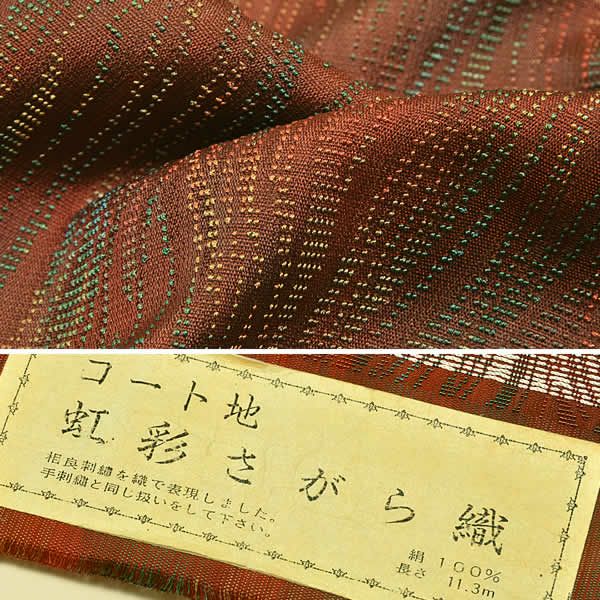 コート地
虹彩さがら織
相良刺繡を織で表現しました。
手刺繡と同じ扱いをして下さい。
絹 100%
長さ 11.3m